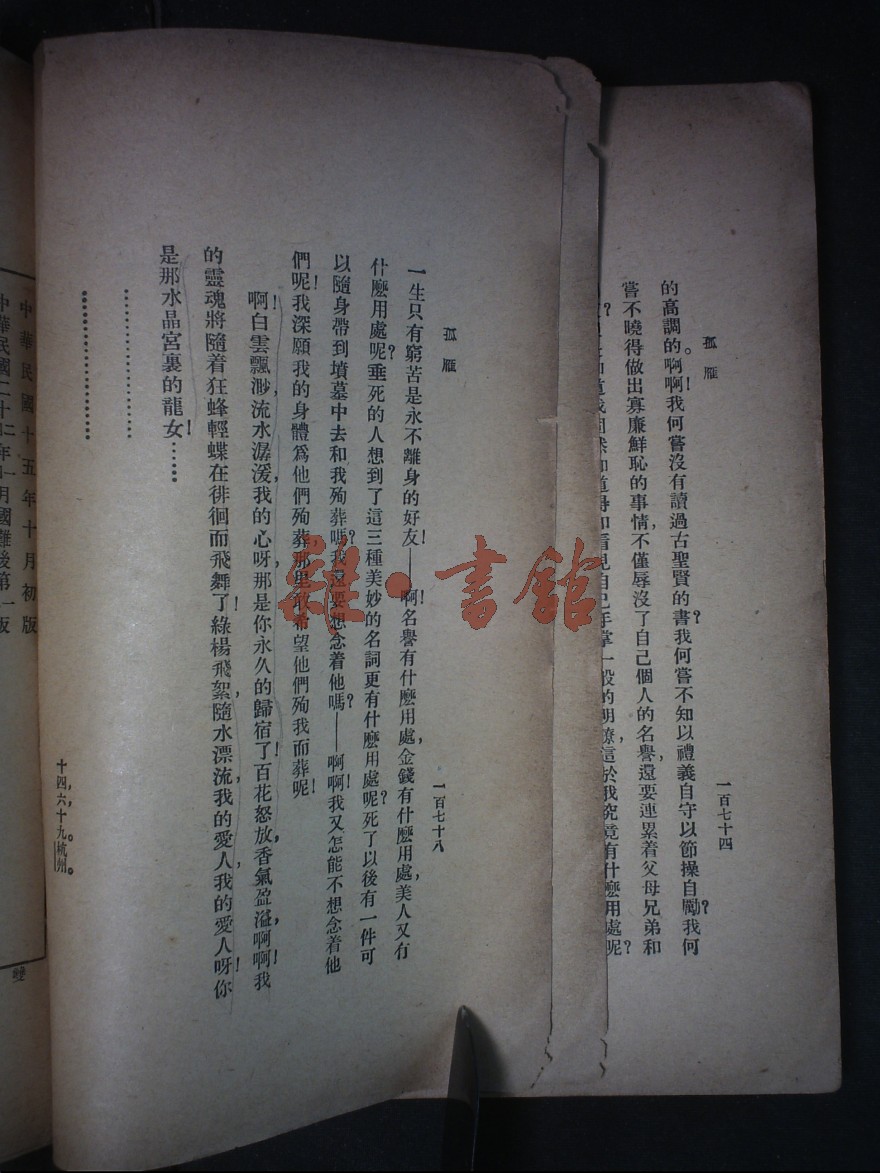 孤雁
一百七十四
的高調的。啊啊！我何嘗沒有讀過古聖賢的書，我何嘗不知以禮義自守以節操自勵？我何
嘗不曉得做出寡廉鮮恥的事情，不僅辱沒了自己個人的名譽，還要連累着父母兄弟和
看見自己手掌一般的明瞭，這於我究竟有什麽用處呢？
孤雁
一百七十八
一生只有窮苦是永不離身的好友！——啊！名譽有什麽用處，金錢有什麽用處，美人又有
什麽用處呢？垂死的人想到了這三種美妙的名詞更有什麽用處呢？死了以後有一件可
以隨身帶到墳墓中去和我殉葬嗎？我還要想念着他嗎？——啊啊！我又怎能不想念着他
們呢！我深願我的身體爲他們殉葬，那里敢希望他們殉我而葬呢！
啊！白雲飄渺，流水潺湲，我的心呀！那是你永久的歸宿了！百花怒放，香氣盈溢，啊啊！我
的靈魂將隨着狂蜂輕蝶在徘徊而飛舞了！綠楊飛絮，隨水漂流，我的愛人，我的愛人呀！你
是那水晶宮裏的龍女！……
………………………
………………………
十四，六，十九。杭州。
中華民國十五年十月初版
中華民國二十二年一月國難後第一版